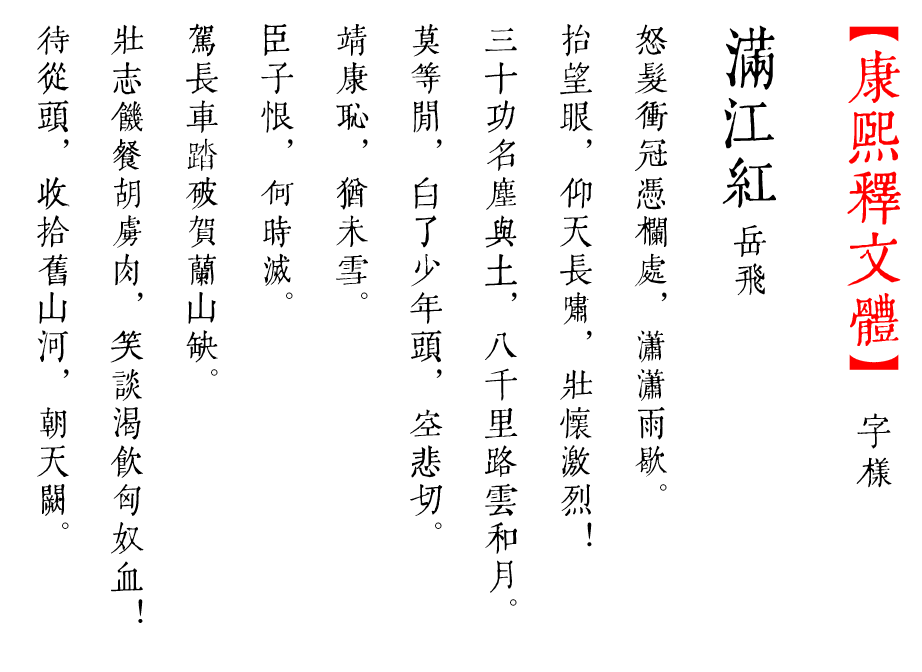 【康熙釋文體】 字樣
滿江紅 岳飛
怒髮衝冠憑欄處，瀟瀟雨歇。
抬望眼，仰天長嘯，壯懷激烈！
三十功名塵與土，八千里路雲和月。
莫等閒，白了少年頭，空悲切。
靖康恥，猶未雪。
臣子恨，何時滅。
駕長車踏破賀蘭山缺。
壯志饑餐胡虜肉，笑談渴飲匈奴血！
待從頭，收拾舊山河，朝天闕。